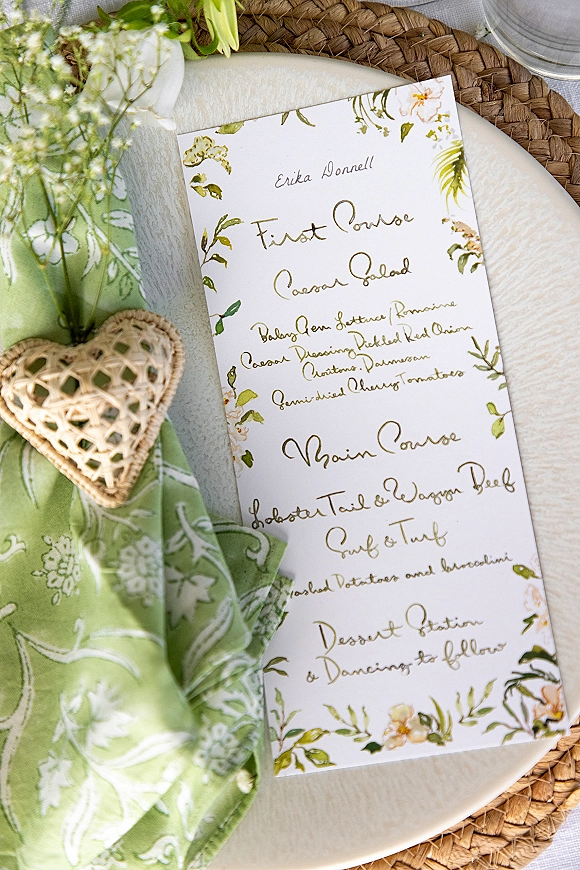 Erika Donnell
First Course
Caesar Salad
Baby Gem Lettuce/Romaine
Caesar Dressing, Pickled Red Onion
Croitons, Parmesan
Semi-dried Cherry Tomatoes
Main Course
Lobster Tail & Wagyu Beef
Surf & Turf
ashed Potatoes and broccolini
Dessert Station
& Dancing to follow